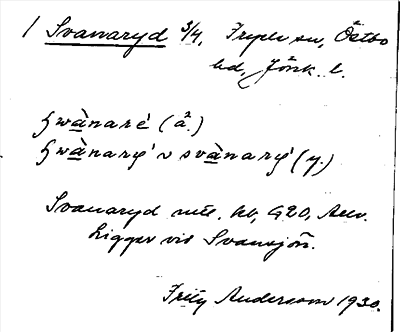 / Svanaryd 3/4, Tryele sn, Östbo
hd, Jönk. l.
ʒwànaré (å.)
ʒwànarý v svànarý (y.)
Svanaryd mtl. hb, G20, Aev.
Ligger vid Svansjön.
Fritz Andersson 1930.